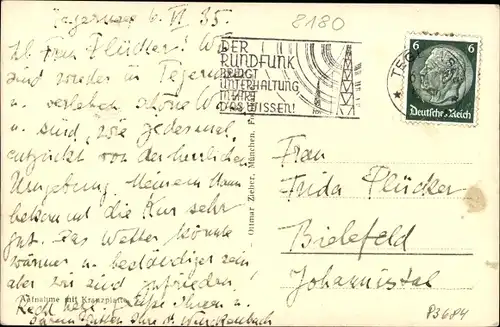 Tegernsee 6. VI 35.
Lb. Frau Plücker! Wir
sind wieder in Tegern
u. verleben schöne
u. sind, wie jedesmal,
entzückt von der herrlichen
Umgebung. Meinem Mann
bekommt die Kur sehr
gut. Das Wetter könnte
wärmer u. beständiger sein
aber wir sind zufrieden!
Recht herzl. Grüße Ihnen u.
Ihre
Aufnahme mit Kranzplatte
Ottmar Zieher, München.
8180
DER
RUNDFUNK
BRINGT
UNTERHALTUNG
MEHRT
DAS WISSEN!
TEG
6 6
Deutsches Reich
Frau
Frida Plücker
Bielefeld
Johannistal
P3684